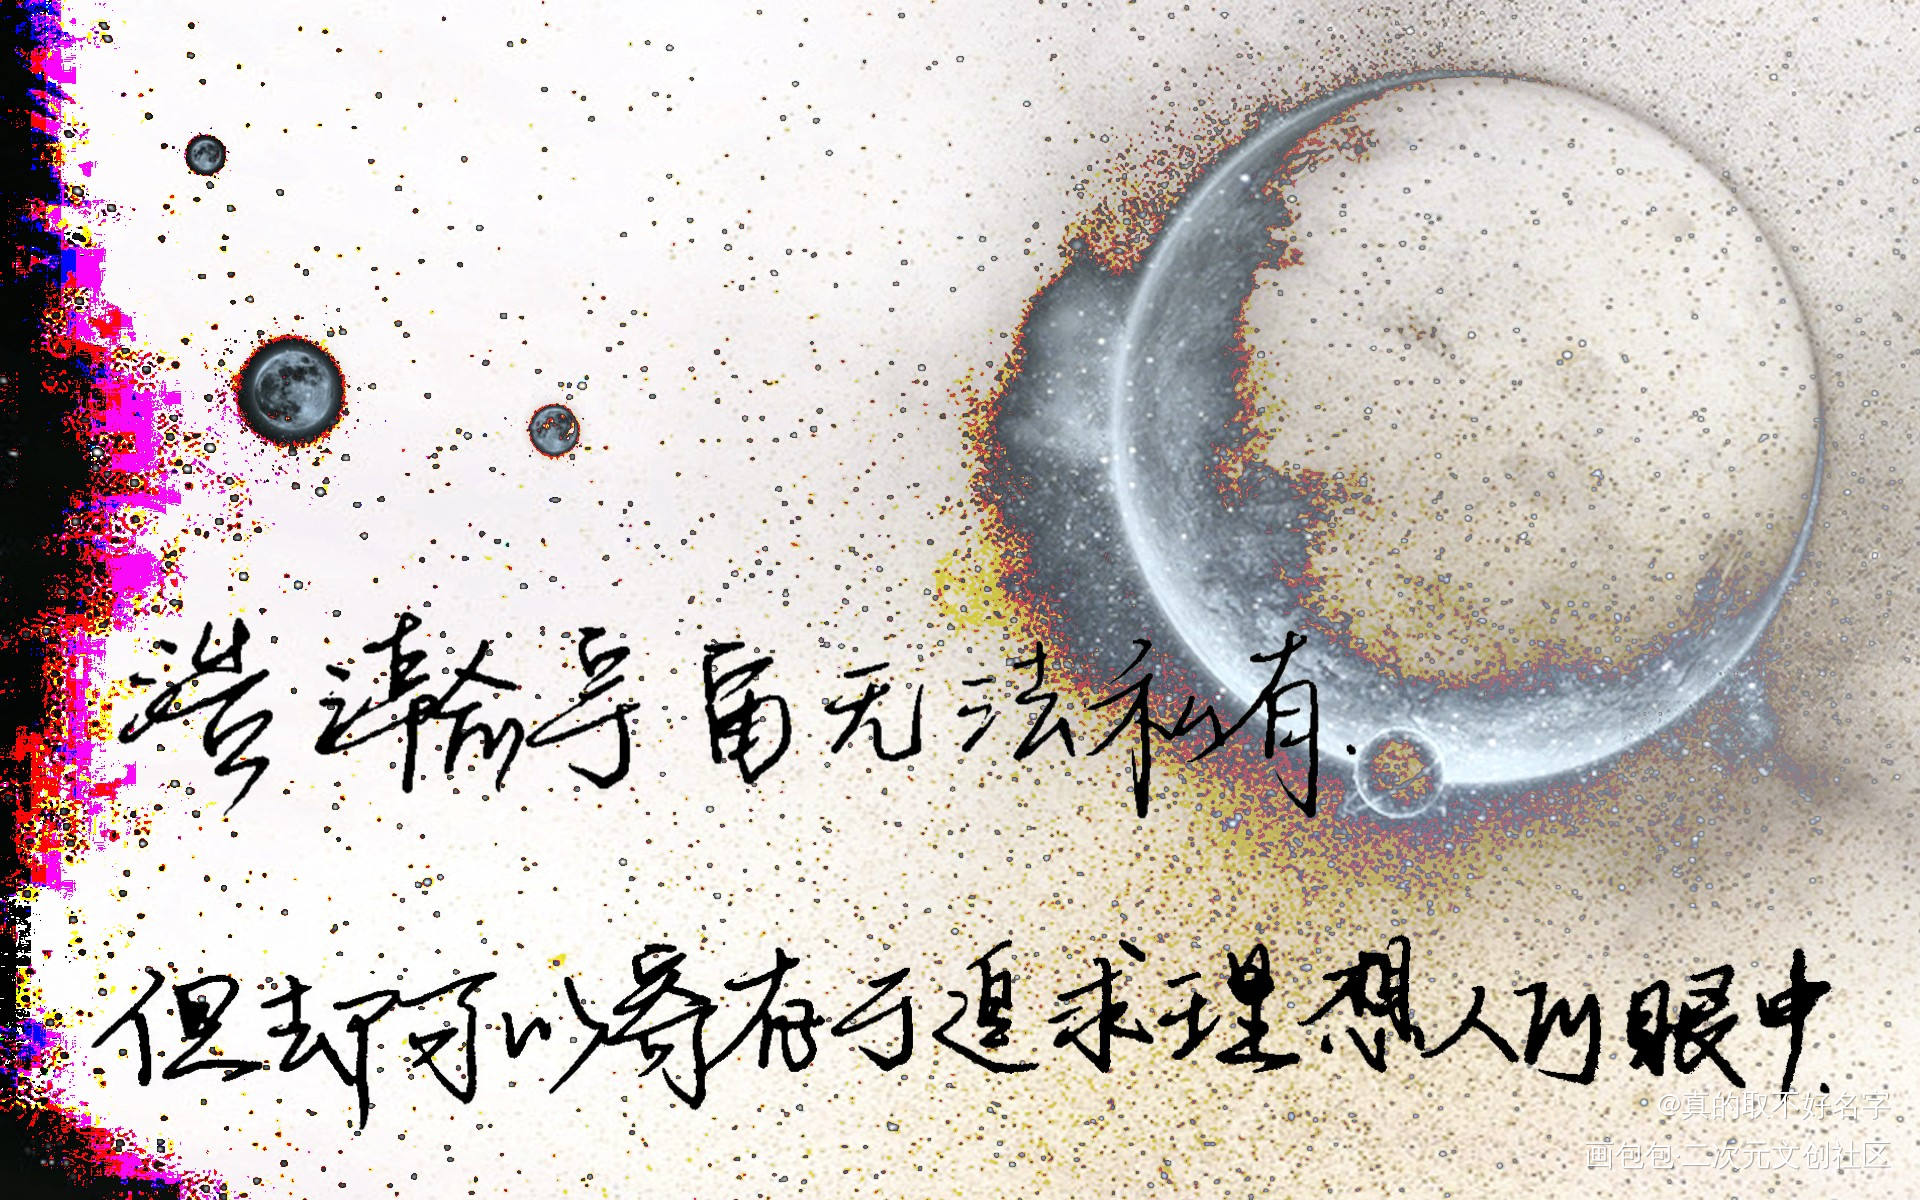 浩瀚宇宙无法私有.
但却可以寄存于追求理想人眼中.
@真的取不好名字
画包包·二次元文创社区